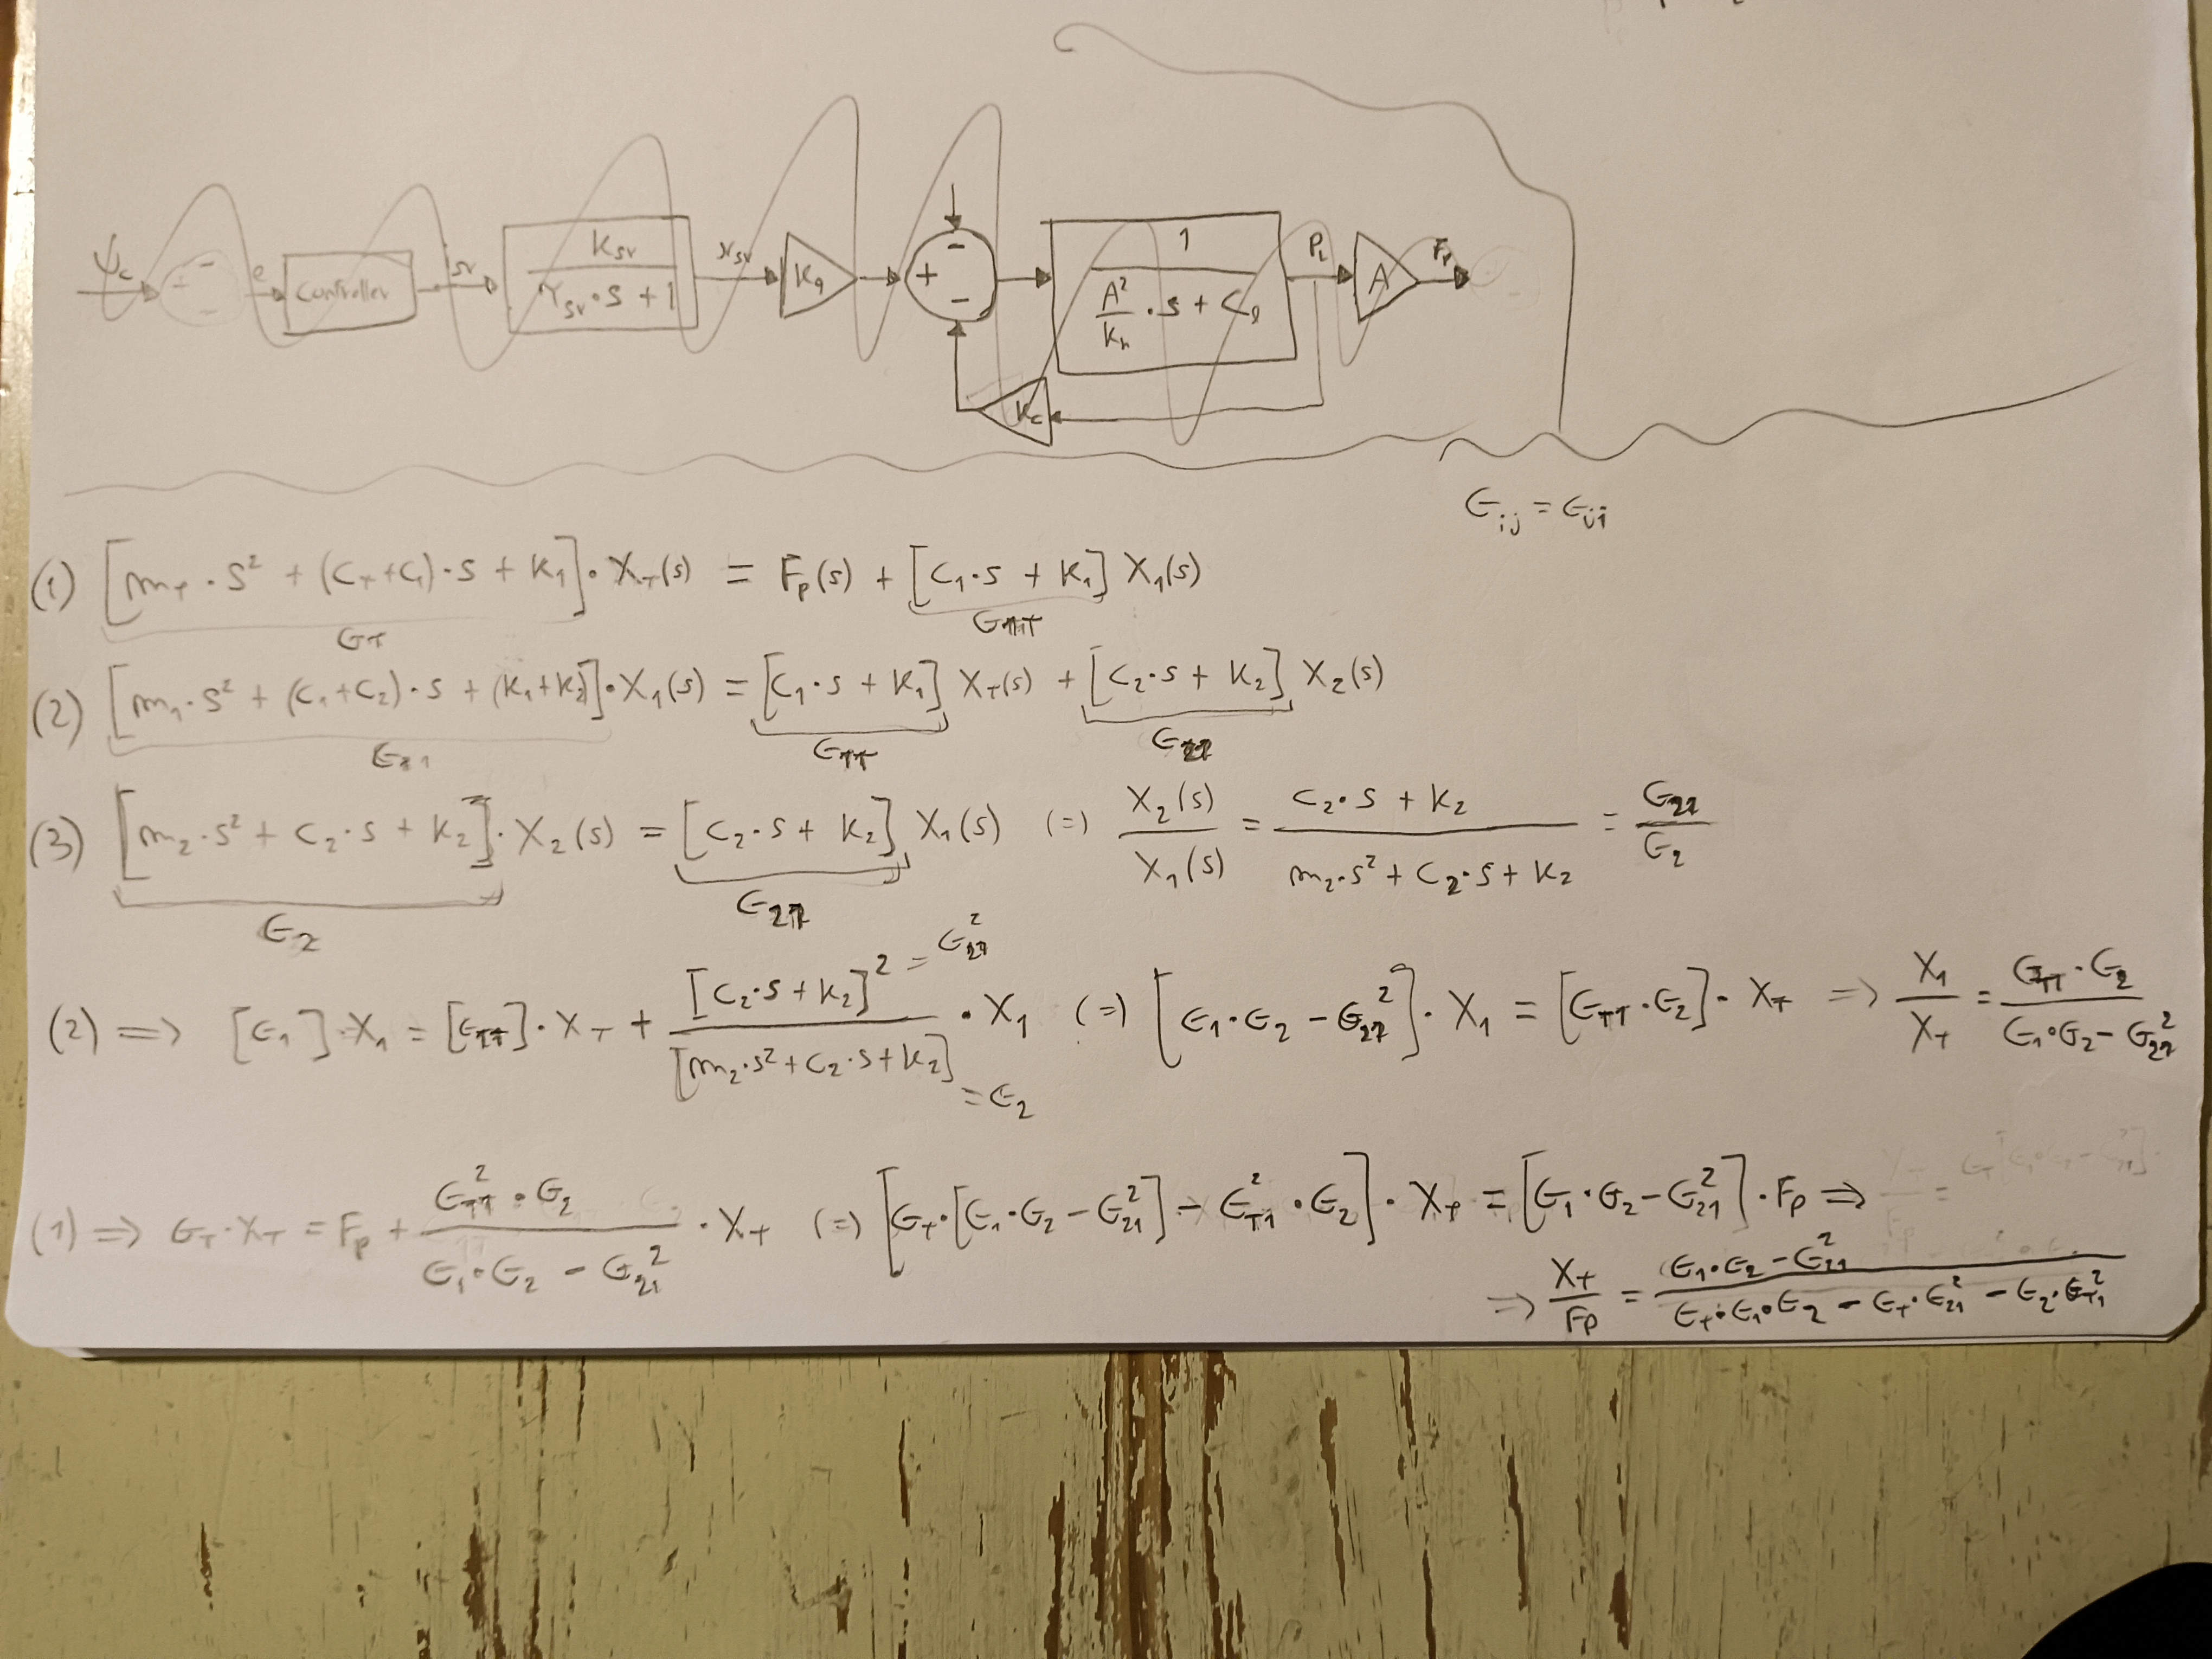 ψc + - - e Controller iSV KSV / τSV·s+1 xSV Kq + - - 1 / A²/Kh · s + Cl PL A Fp
Kc
Gij = Gji
(1) [mT·s² + (CT+C1)·s + K1]·XT(s) = Fp(s) + [C1·s + K1] X1(s)
GT GT1
(2) [m1·s² + (C1+C2)·s + (K1+K2)]·X1(s) = [C1·s + K1] XT(s) + [C2·s + K2] X2(s)
G1 GT1 G21
(3) [m2·s² + C2·s + K2]·X2(s) = [C2·s + K2] X1(s) (=) X2(s) / X1(s) = C2·s + K2 / m2·s² + C2·s + K2 = G21 / G2
G2 G21
(2) => [G1]·X1 = [GT1]·XT + [C2·s + K2]² = G21² / [m2·s² + C2·s + K2] = G2 · X1 (=) [G1·G2 - G21²]·X1 = [GT1·G2]·XT => X1 / XT = GT1·G2 / G1·G2 - G21²
(1) => GT·XT = Fp + GT1²·G2 / G1·G2 - G21² · XT (=) [GT·[G1·G2 - G21²] - GT1²·G2]·XT = [G1·G2 - G21²]·Fp =>
=> XT / Fp = G1·G2 - G21² / GT·G1·G2 - GT·G21² - G2·GT1²